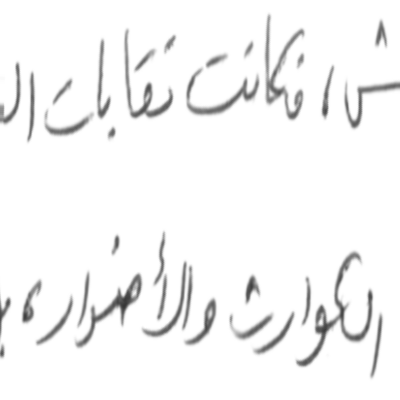 ش، فكانت نقابات
الكوارث والأضرار،